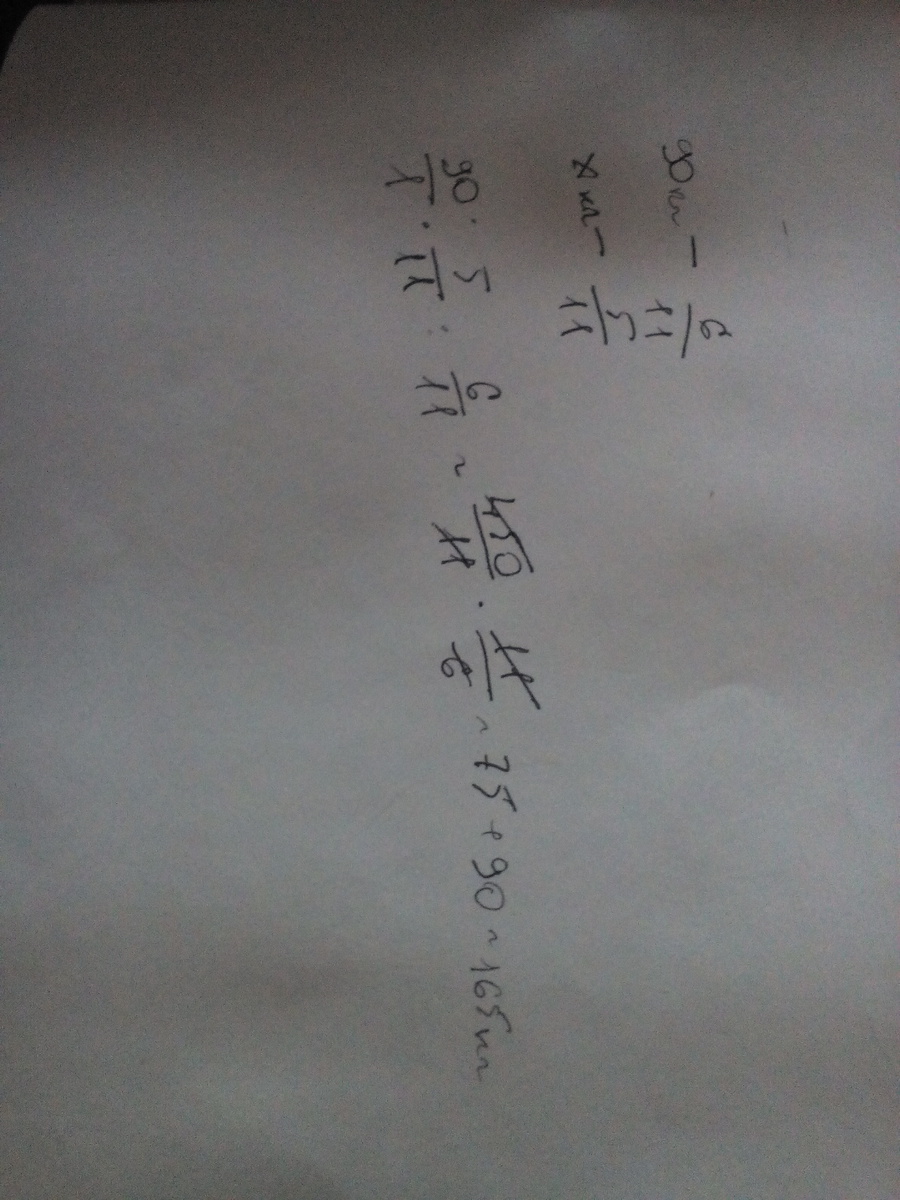 90 кг — 6/11
x кг — 5/11
90/1 · 5/11 : 6/11 = 450/11 · 11/6 = 75 + 90 = 165 кг